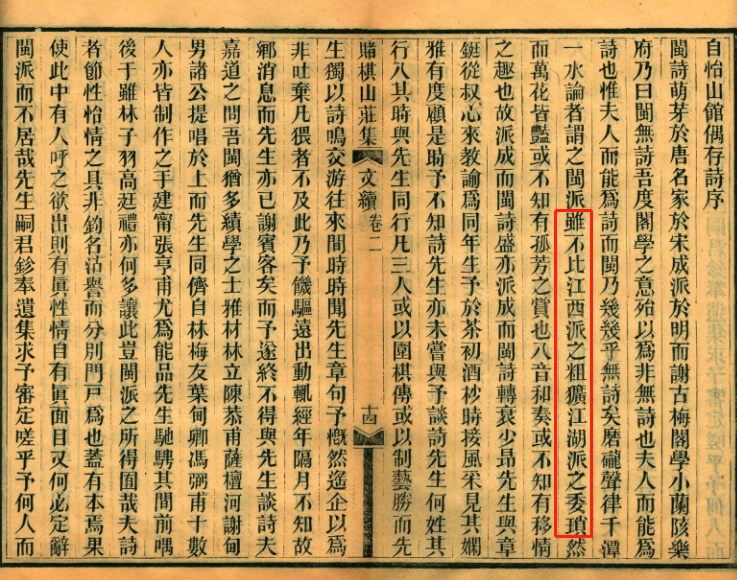 自怡山館偶存詩序
閩詩萌芽於唐名家於宋成派於明而謝古梅閣學小蘭陔樂
府乃曰閩無詩吾度閣學之意殆以爲非無詩也夫人而能爲
詩也惟夫人而能爲詩而閩乃幾幾乎無詩矣磨礲聲律千潭
一水論者謂之閩派雖不比江西派之粗獷江湖派之委瑣然
而萬花皆豔或不知有孤芳之賞也八音和奏或不知有移情
之趣也故派成而閩詩盛亦派成而閩詩轉衰少昂先生與章
鋌從叔心來教諭爲同年生予於茶初酒杪時接風采見其嫻
雅有度顧是時予不知詩先生亦未嘗與予談詩先生何姓其
行八其時與先生同行凡三人或以圍棋傳或以制藝勝而先
賭棋山莊集 文續 卷二 十四
生獨以詩鳴交游往來間時時聞先生章句予慨然遙企以爲
非吐棄凡猥者不及此乃予饑驅遠出動輒經年隔月不知故
鄉消息而先生亦已謝賓客矣而予遂終不得與先生談詩夫
嘉道之間吾閩猶多績學之士雅材林立陳恭甫薩檀河謝甸
男諸公提唱於上而先生同儕自林梅友葉甸卿馮弼甫十數
人亦皆制作之手建甯張亨甫尤爲能品先生馳騁其間前喁
後于雖林子羽高廷禮亦何多讓此豈閩派之所得囿哉夫詩
者節性怡情之具非釣名沽譽而分別門戶爲也蓋有本焉果
使此中有人呼之欲出則有眞性情自有眞面目又何必定辭
閩派而不居哉先生嗣君鉁奉遺集求予審定嗟乎予何人而